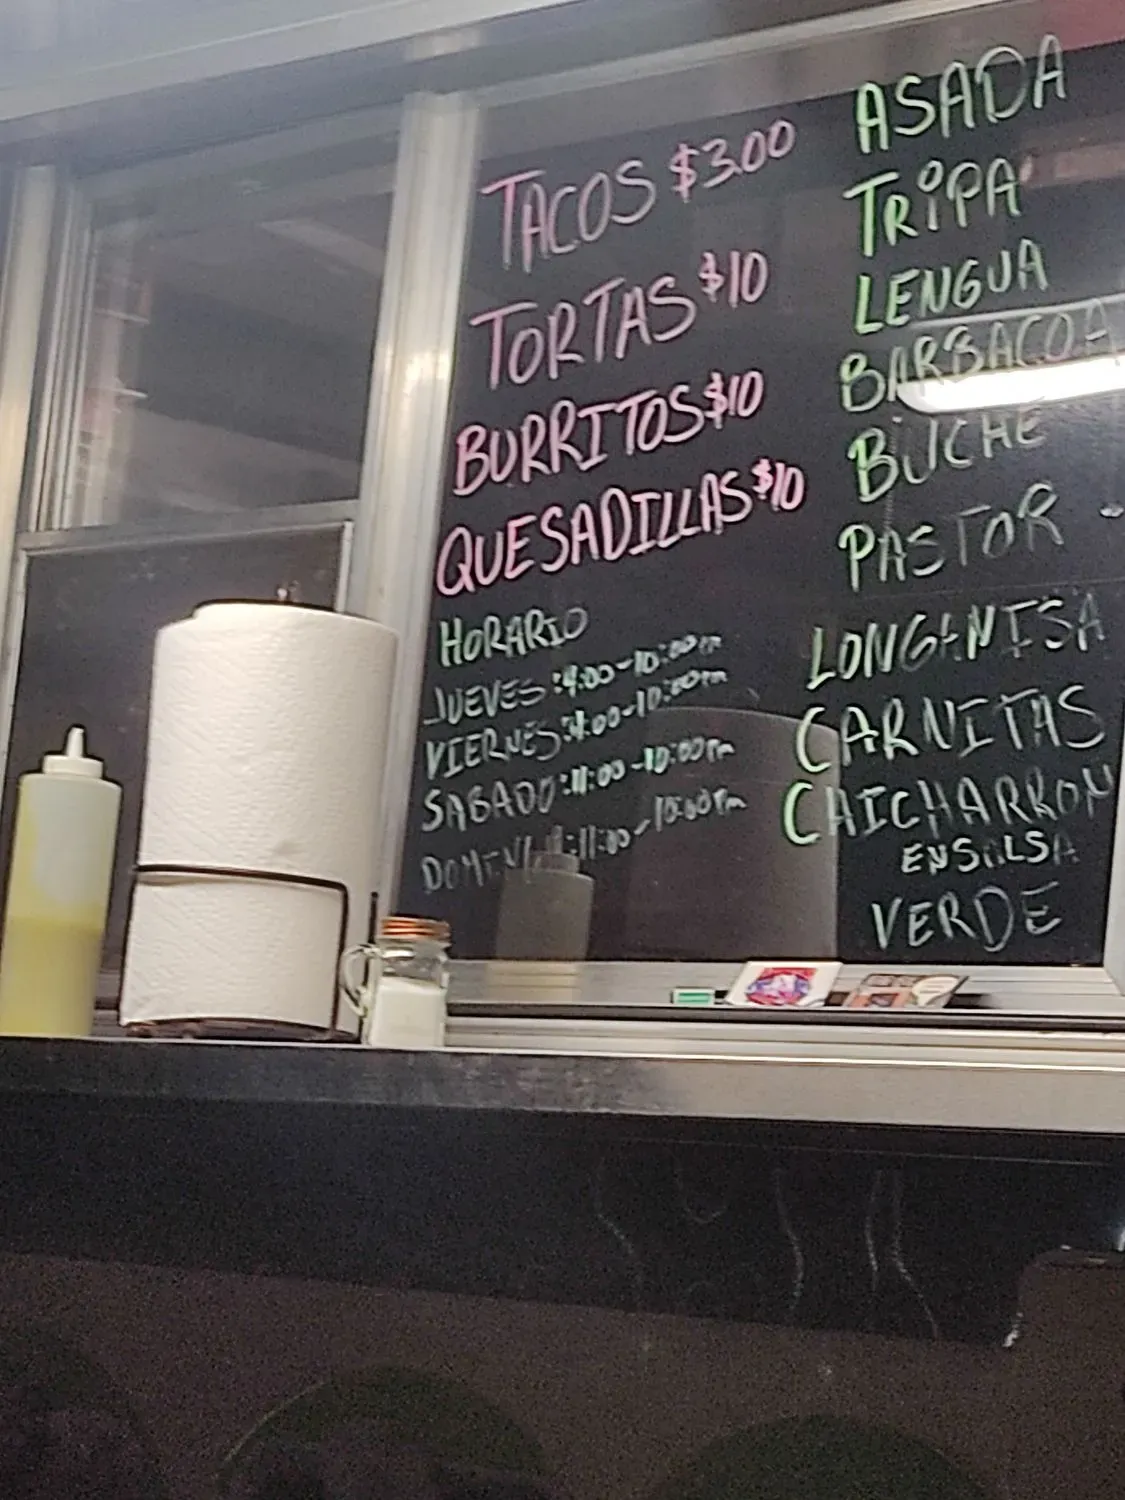 TACOS $3.00
TORTAS $10
BURRITOS $10
QUESADILLAS $10
HORARIO
JUEVES:4:00-10:00pm
VIERNES:4:00-10:00pm
SABADO:11:00-10:00pm
:11:00-10:00pm
ASADA
TRIPA
LENGUA
BARBACOA
BUCHE
PASTOR
LONGANISA
CARNITAS
CHICHARRON
EN SALSA
VERDE